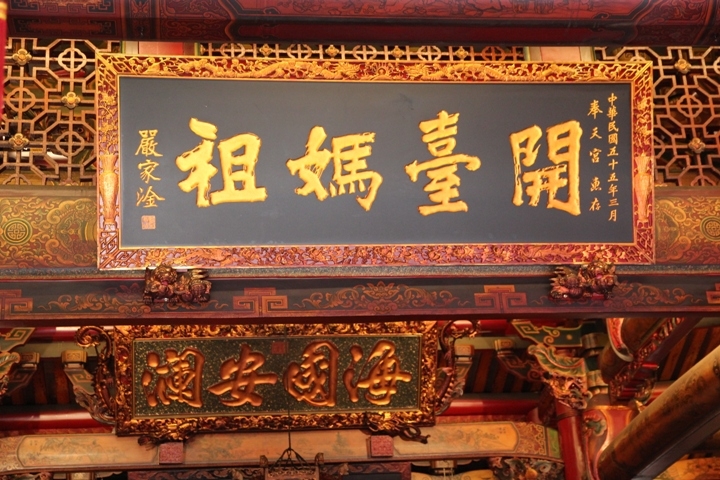 中華民國五十五年三月
奉天宮 惠存
開臺媽祖
嚴家淦
海國安瀾